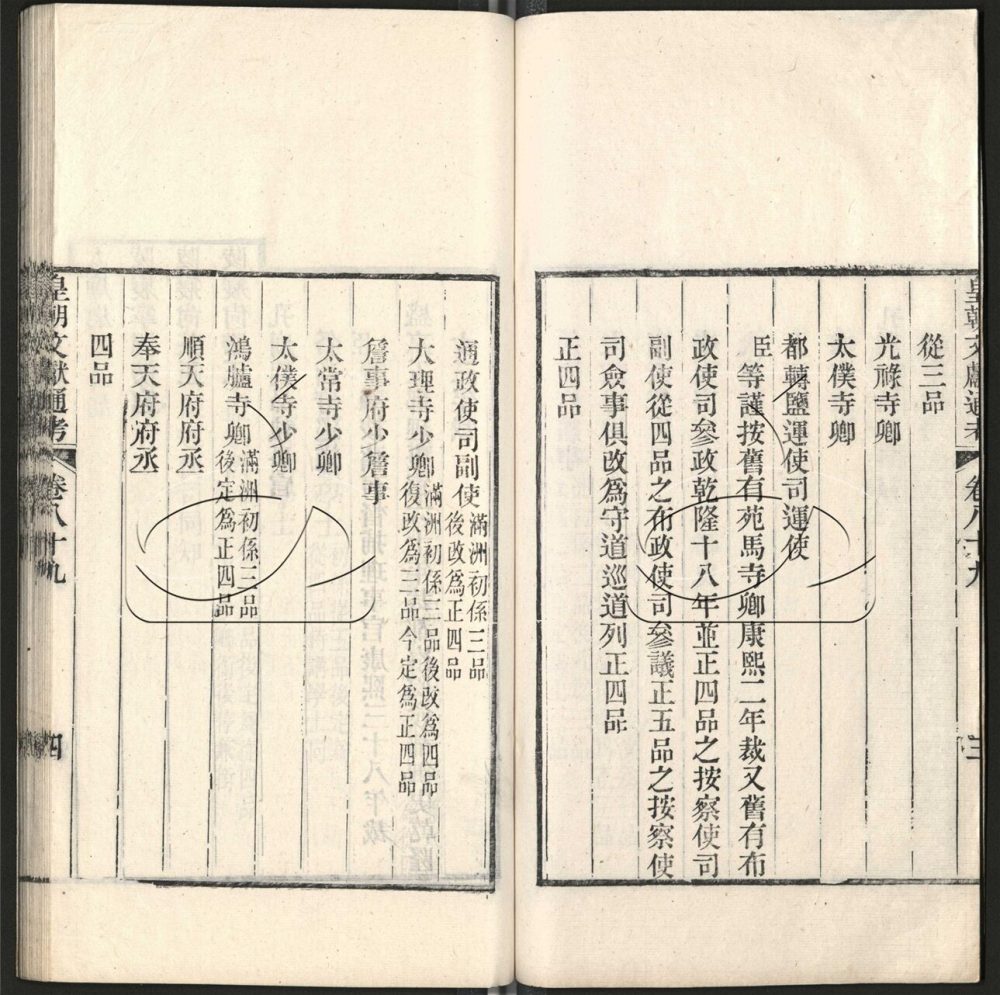 皇朝文獻通考 卷八十九 三
從三品
光祿寺卿
太僕寺卿
都轉鹽運使司運使
臣等謹按舊有苑馬寺卿康熙二年裁又舊有布
政使司參政乾隆十八年並正四品之按察使司
副使從四品之布政使司參議正五品之按察使
司僉事俱改爲守道巡道列正四品
正四品
通政使司副使滿洲初係三品後改爲正四品
大理寺少卿滿洲初係三品後改爲四品復改爲三品今定爲正四品
詹事府少詹事
太常寺少卿
太僕寺少卿
鴻臚寺卿滿洲初係三品後定爲正四品
順天府府丞
奉天府府丞
四品
皇朝文獻通考 卷八十九 四